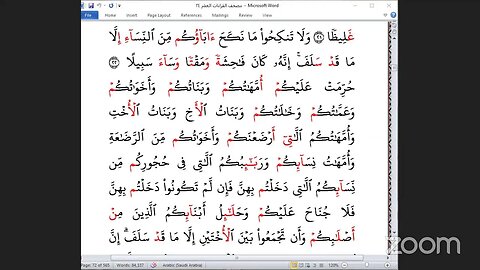 مصحف القراءات العشر ٢٤ - Microsoft Word
Home Insert Page Layout References Mailings Review View
غَلِيظٗا ٢١ وَلَا تَنكِحُواْ مَا نَكَحَ ءَابَآؤُكُم مِّنَ ٱلنِّسَآءِ إِلَّا
مَا قَدۡ سَلَفَۚ إِنَّهُۥ كَانَ فَٰحِشَةٗ وَمَقۡتٗا وَسَآءَ سَبِيلًا ٢٢
حُرِّمَتۡ عَلَيۡكُمۡ أُمَّهَٰتُكُمۡ وَبَنَاتُكُمۡ وَأَخَوَٰتُكُمۡ
وَعَمَّٰتُكُمۡ وَخَٰلَٰتُكُمۡ وَبَنَاتُ ٱلۡأَخِ وَبَنَاتُ ٱلۡأُخۡتِ
وَأُمَّهَٰتُكُمُ ٱلَّٰتِيٓ أَرۡضَعۡنَكُمۡ وَأَخَوَٰتُكُم مِّنَ ٱلرَّضَٰعَةِ
وَأُمَّهَٰتُ نِسَآئِكُمۡ وَرَبَٰٓئِبُكُمُ ٱلَّٰتِي فِي حُجُورِكُم مِّن
نِّسَآئِكُمُ ٱلَّٰتِي دَخَلۡتُم بِهِنَّ فَإِن لَّمۡ تَكُونُواْ دَخَلۡتُم بِهِنَّ
فَلَا جُنَاحَ عَلَيۡكُمۡ وَحَلَٰٓئِلُ أَبۡنَآئِكُمُ ٱلَّذِينَ مِنۡ
أَصۡلَٰبِكُمۡ وَأَن تَجۡمَعُواْ بَيۡنَ ٱلۡأُخۡتَيۡنِ إِلَّا مَا قَدۡ سَلَفَۗ إِنَّ
Page: 72 of 565 Words: 84,537 Arabic (Saudi Arabia) 120%
zoom